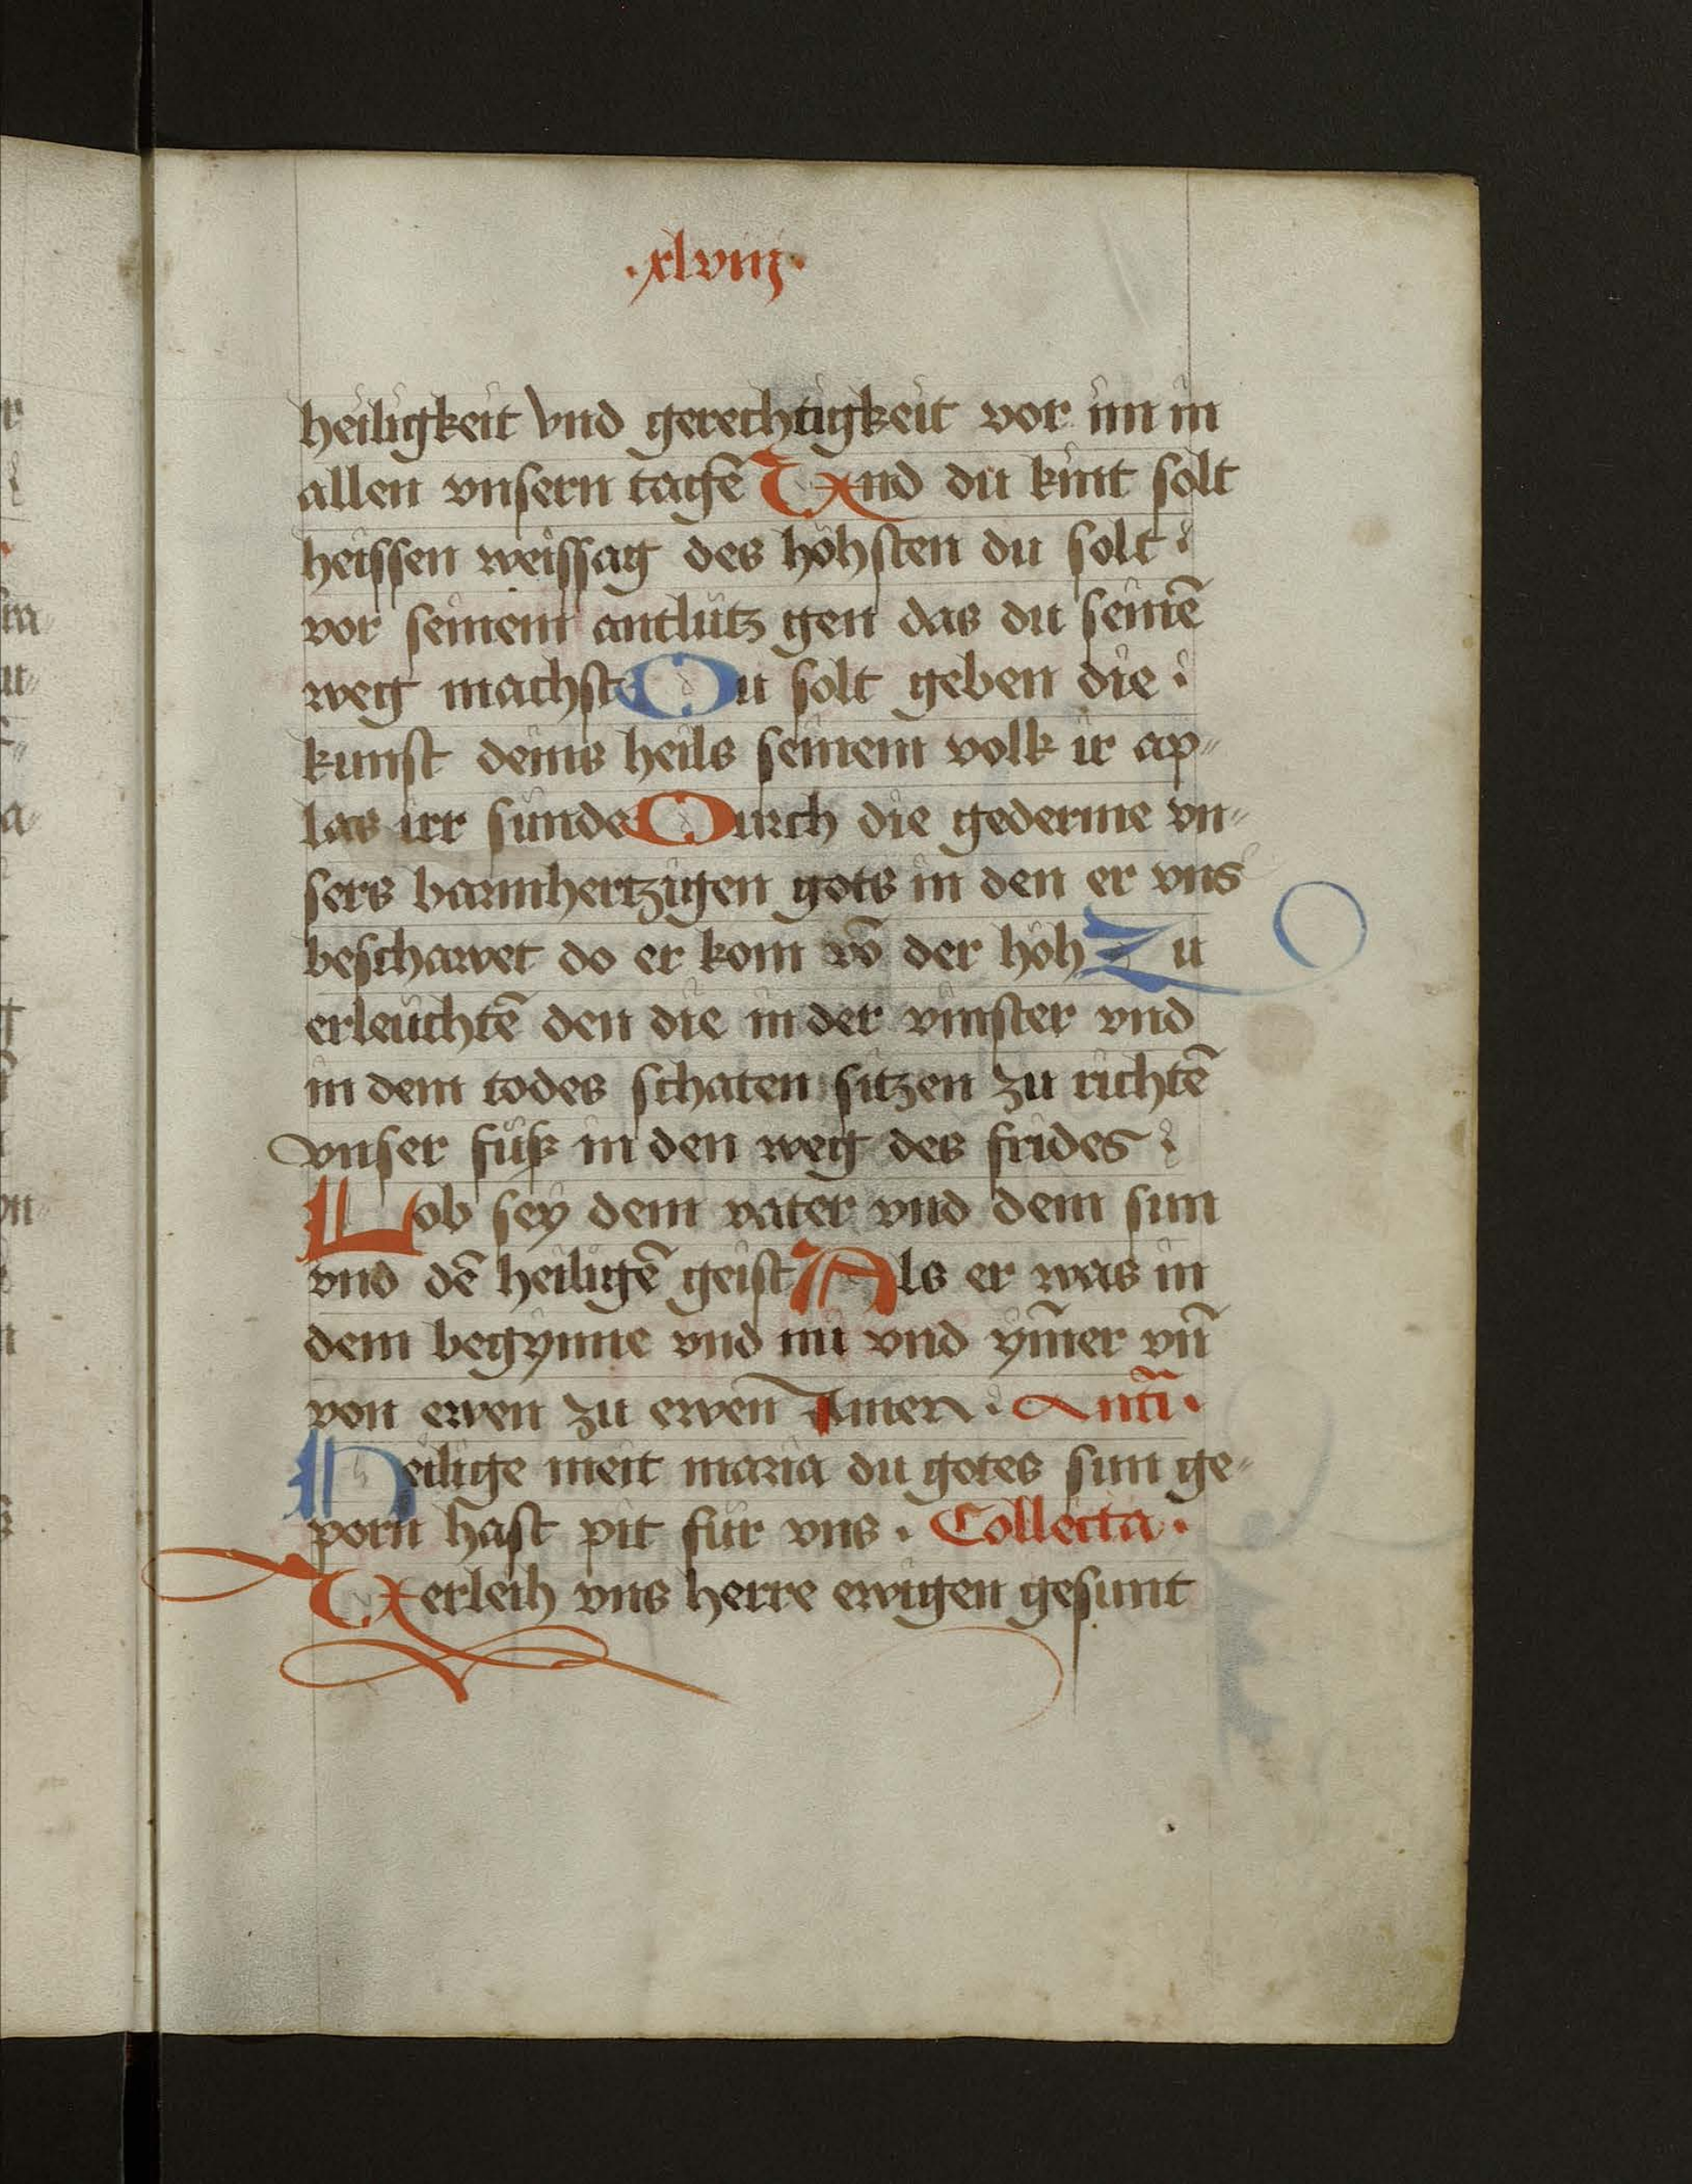 ·xlviij·
heiligkeit vnd gerechtigkeit vor im in
allen vnsern tagē Vnd du kint solt
heissen weissag des höhsten du solt
vor seinem antlütz gen das du seinē
weg machst Du solt geben die
kunst deins heils seinem volk ir ap⸗
las irr sünde Durch die gederme vn⸗
sers barmhertzigen gots in den er vns
beschawet do er kom vō der höh Zu
erleuchtē den die in der vinster vnd
in dem todes schaten sitzen zu richtē
vnser füß in den weg des frides
Lob sey dem vater vnd dem sun
vnd dē heiligē geist Als er was in
dem begynne vnd nu vnd ym̄er vn̄
von ewen zu ewen Amen · Antā ·
Heilige meit maria du gotes sun ge⸗
porn hast pit für vns · Collecta ·
Verleih vns herre ewigen gesunt